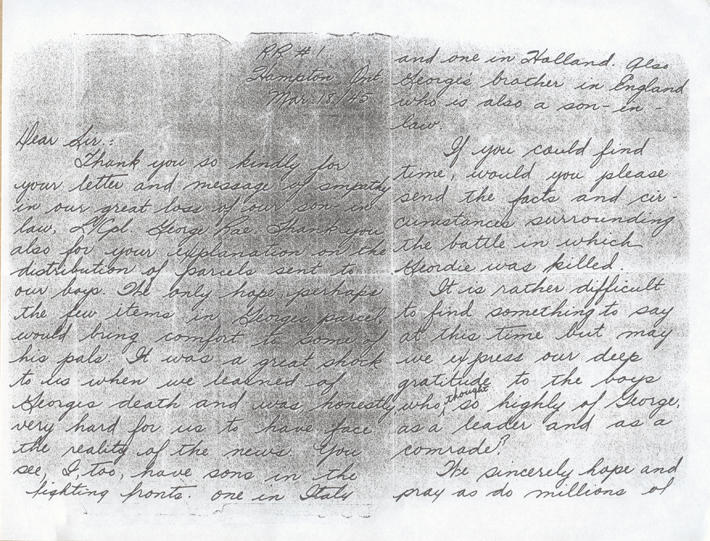 RR #1
Hampton Ont
Mar. 18/45
Dear Sir.:
Thank you so kindly for
your letter and message of smpathy
in our great loss of our son-in
law, L/Cpl George Rae. Thank you
also for your explanation on the
distribution of parcels sent to
our boys. We only hope, perhaps
the few items in Georges parcel
would bring comfort to some of
his pals. It was a great shock
to us when we learned of
Georges death and was honestly
very hard for us to have face
the reality of the news. You
see, I too, have sons in the
fighting fronts. one in Italy
and one in Holland. Also
George's brother in England
who is also a son-in-
law.
If you could find
time, would you please
send the facts and cir-
cumstances surrounding
the battle in which
Geordie was killed.
It is rather difficult
to find something to say
at this time but may
we express our deep
gratitude to the boys
who, thought so highly of George,
as a leader and as a
comrade?
We sincerely hope and
pray as do millions of